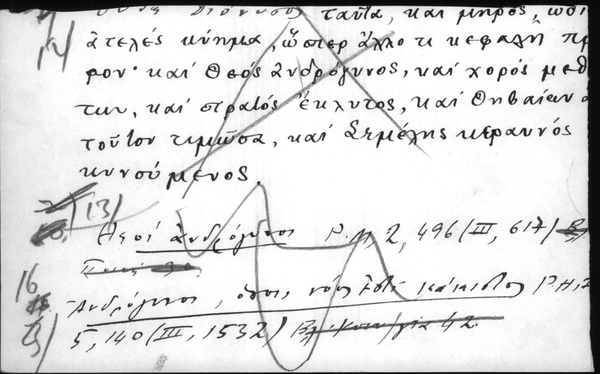 Διόνυσος ταῦτα, καὶ μηρός, ὠδί
12) ἀτελές κύημα, ὥσπερ ἄλλο τι κεφαλή πρ
ρον· καὶ θεός ἀνδρόγυνος, καὶ χορός μεθ
των, καὶ στρατός ἔκλυτος, καὶ Θηβαίων
τοῦτον τιμῶσα, καὶ Σεμέλης κεραυνός
κυνούμενος.
13)
Θεοί ἀνδρόγυνοι Ρ.Η, 2, 496 (III, 617)
16 Ἀνδρόγυνος, ὅστις νόῳ ἐστί κάκιστος Ρ.Η,
5, 140 (III, 1532)